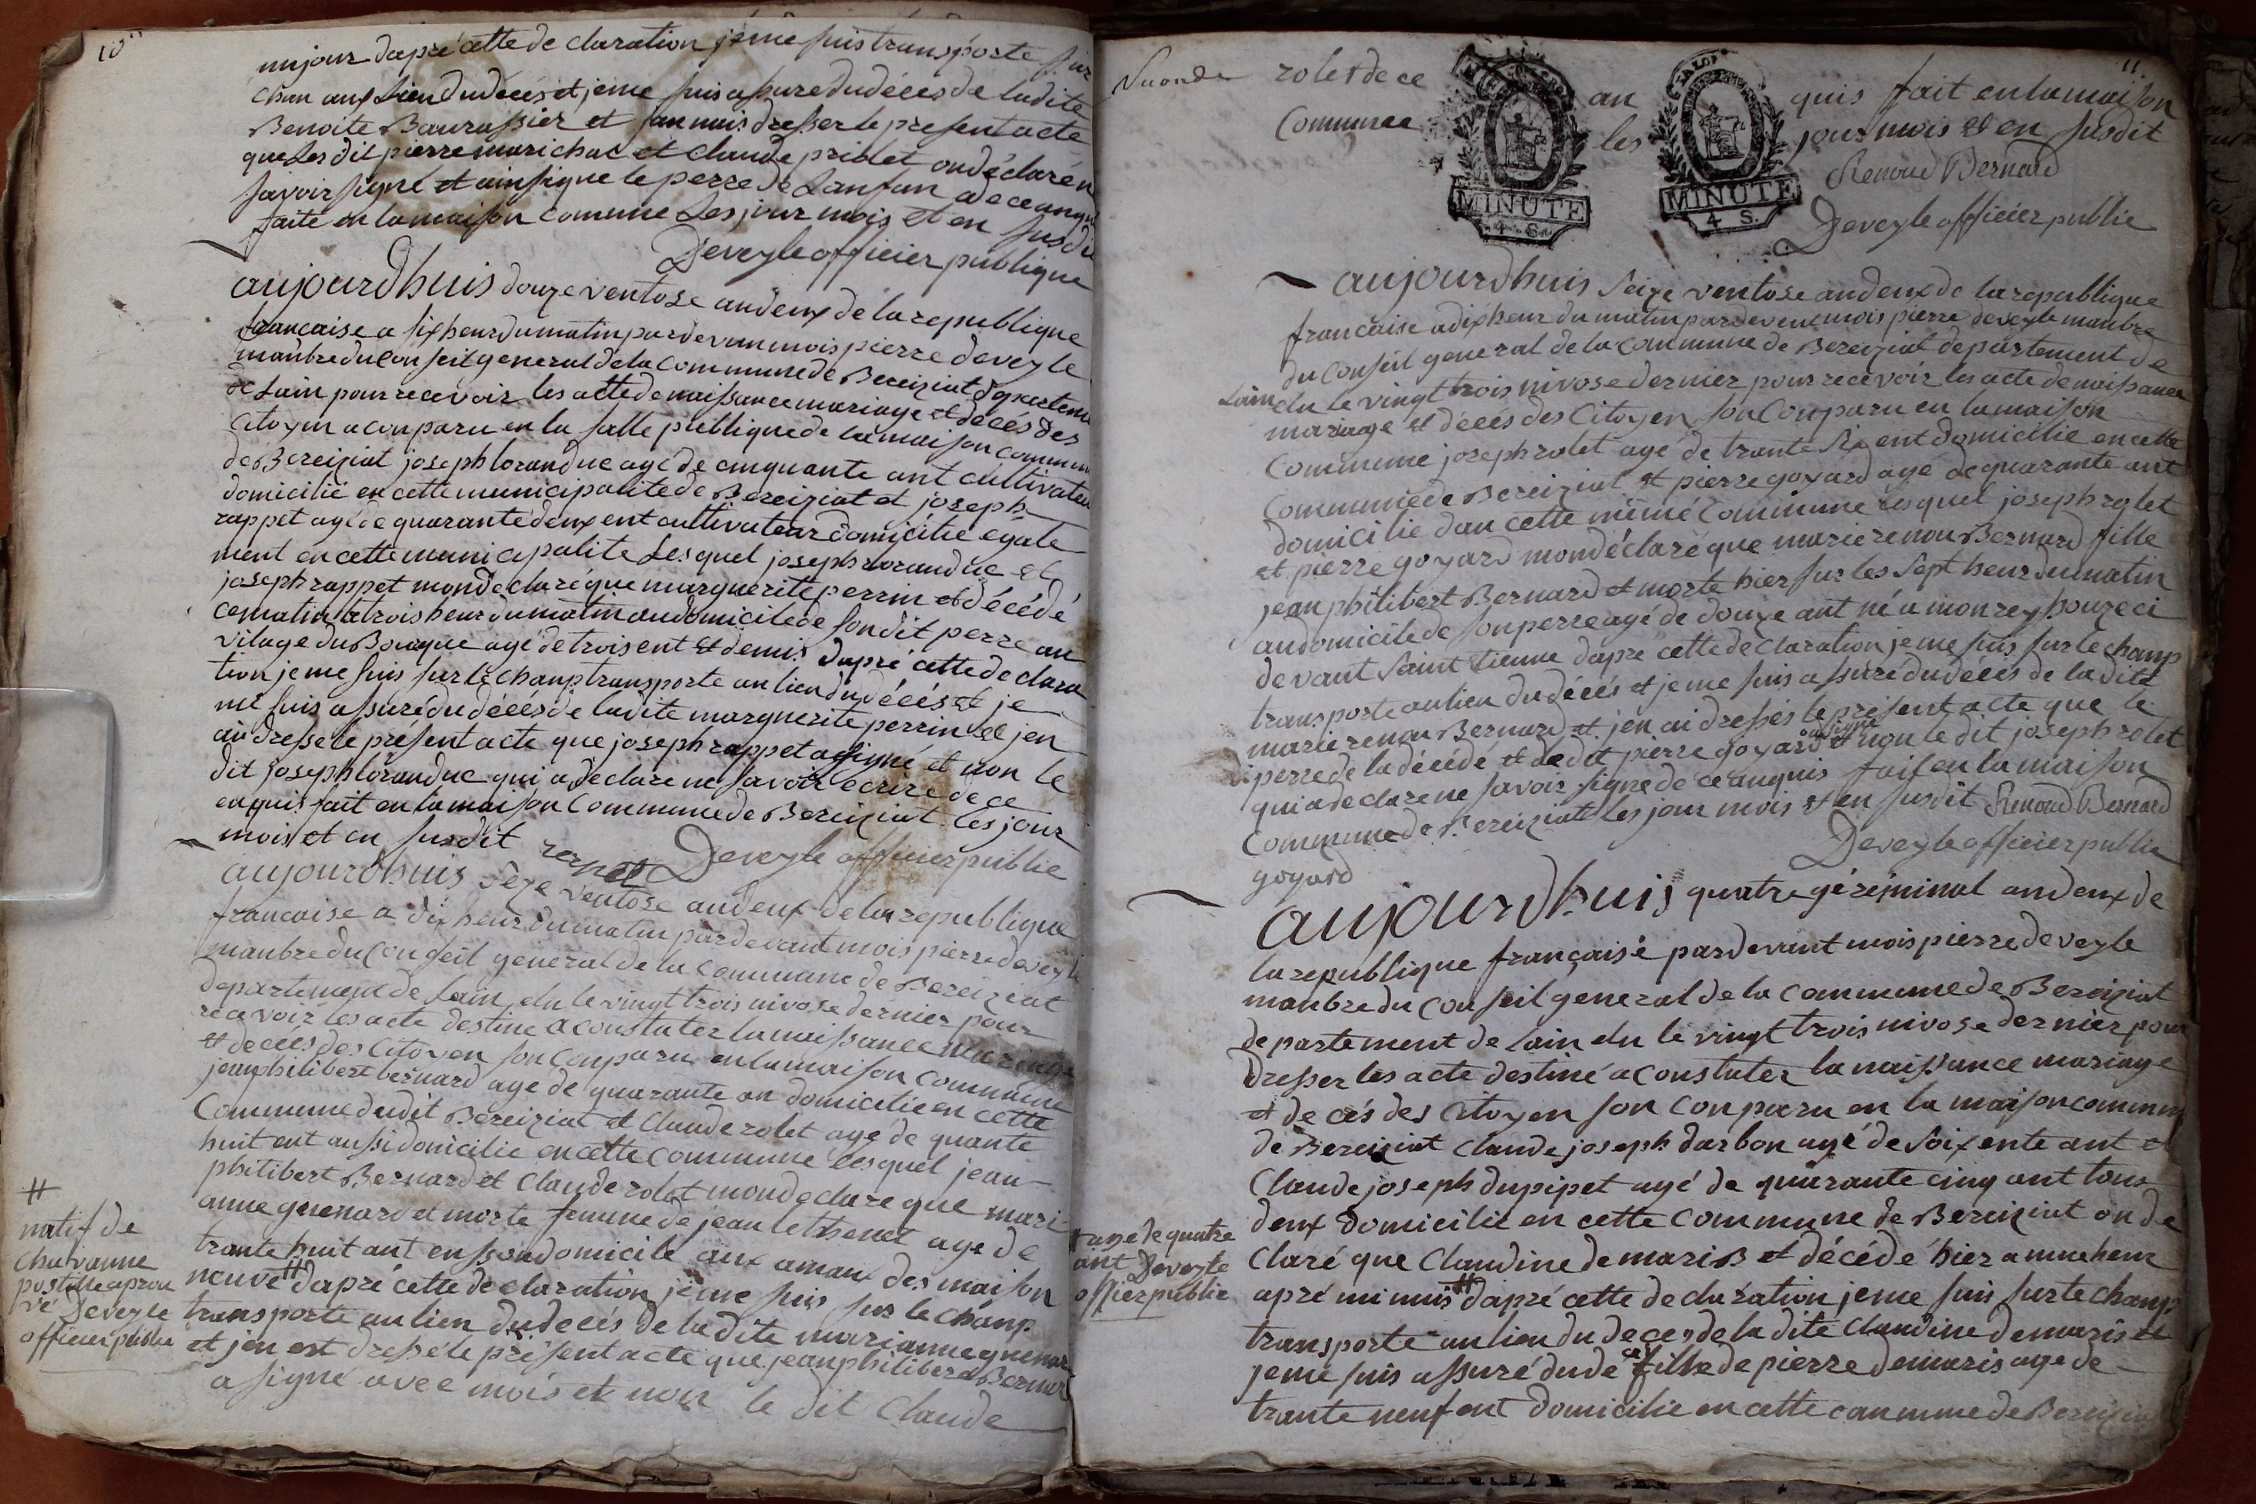 10
un jour dapré cette de claration je me suis transporte sur
chan aux Lieu du décés et je me suis assure du décés de ladite
Benoite Baurassier et jan nais dresser le present acte
que Les dit pierre marichac et Claude priblet on déclaré n
savoir signe et ainsigne le perre de Lanfan de ce anquis
faite en la maison comune Les jour mois et en susdit
Deveyle officier publique
aujourdhuis douze ventose an deux de la republique
francaise a six heur du matin pardevan mois pierre deveyle
manbre du Conseil general de la Commune de Bereiziat departem
de Lain pour recevoir les acte de naissance mariage et décés des
Citoyin a conparu en la salle publique de la maison commun
de Bereiziat joseph lorandue agé de cinquante ant cultivateur
domicilié en cette municipalité de Bereiziat et joseph
rappet agé de quarante deux ent cultivateur domicilié égale
ment en cette municipalite Lesquel joseph lorandue et
joseph rappet mon déclaré que marguerite perrin et décédé
ce matin a trois heur du matin au domicile de son dit perre au
vilage du Bouque agé de trois ent et demis dapré cette de clara
tion je me suis sur le chanp transporte au lieu du décés et je
me suis assuré du décés de ladite marguerite perrin et jen
ai dresse le présent acte que joseph rappet a signé et non le
dit joseph lorandue qui a declare ne savoir ecrire de ce
enquis fait en la maison Commune de Bereiziat les jour
mois et en susdit rappet Deveyle officier publie
aujourdhuis seze ventose an deux de la republique
francaise a dix heur du matin pardevant mois pierre deveyle
manbre du Conseil general de la Commune de Bereiziat
departement de Lain elu le vingt trois nivose dernier pour
recevoir les acte destine a constater la naissance mariage
et décés des Citoyen son conparu en la maison commune
jean philibert bernard age de quarante an domicilie en cette
Commune dudit Bereiziat et Claude rolet agé de quante
huit ent aussi domicilie en cette commune lesquel jean
philibert Bernard et Claude rolet mon declare que mari
anne guenard et morte femme de jean lethenet age de
trante huit ant en son domicile aux aman des maison
neuve # dapré cette de claration je me suis sur le chanp
transporte au lieu du decés de la dite marianne guenar
et jen est dressé le présent acte que jean philibert Bernar
a signé avec mois et non le dit Claude
#
natif de
chavanne
postille aprou
vé Deveyle
officier publie
11
Nuonde rolet de ce an quis fait en la maison
Commune les jour mois et en susdit
MINUTE
4 S.
MINUTE
4 S.
Renoud Bernard
Deveyle officier publie
aujourdhuis seize ventose an deux de la republique
francaise a dix heur du matin pardevent mois pierre deveyle manbre
du Conseil general de la Commune de Bereiziat departement de
Lain elu le vingt trois nivose dernier pour recevoir les acte de naissance
mariage et décés des Citoyen son Conparu en la maison
Commune joseph rolet agé de trante six ent domicilie en cette
Commune de Bereiziat et pierre goyard agé de quarante ant
domicilie dan cette mémé Commune lesquel joseph rolet
et pierre goyard mon déclaré que marie renou Bernard fille
jean philibert Bernard et morte hier sur les sept heur du matin
au domicile de son perre agé de douze ant né a monrey pouze ci
devant Saint Etienne dapré cette de claration je me suis sur le chanp
transporte au lieu du décés et je me suis assuré du décés de la dite
marie renou Bernard et jen ai dressés le présent acte que le
perre de la décédé et le dit pierre goyard on signe et non le dit joseph rolet
qui a declare ne savoir signe de ce anquis fait en la maison
Commune de Bereiziat les jour mois et en susdit Renoud Bernard
Deveyle officier publie
goyard
aujourdhuis quatre géréminal an deux de
la republique française pardevant mois pierre deveyle
manbre du Conseil general de la Commune de Bereiziat
departement de Lain elu le vingt trois nivose dernier pour
dresser les acte destiné a constater la naissance mariage
et de cés des Citoyen son conparu en la maison commun
de Bereiziat Claude joseph darbon agé de soixente ant et
Claude joseph dupipet agé de quarante cinq ant tous
deux domicilie en cette Commune de Bereiziat on de
claré que Claudine demaris et décédé hier a une heur
apré mi nuis # dapré cette de claration je me suis sur le chanp
transporte au lieu du deces de la dite Claudine demaris et
je me suis assuré dudé cé fille de pierre demaris age de
trante neuf ent domicilie en cette commune de Bereiziat
# age de quatre
ant Deveyle
officier publie